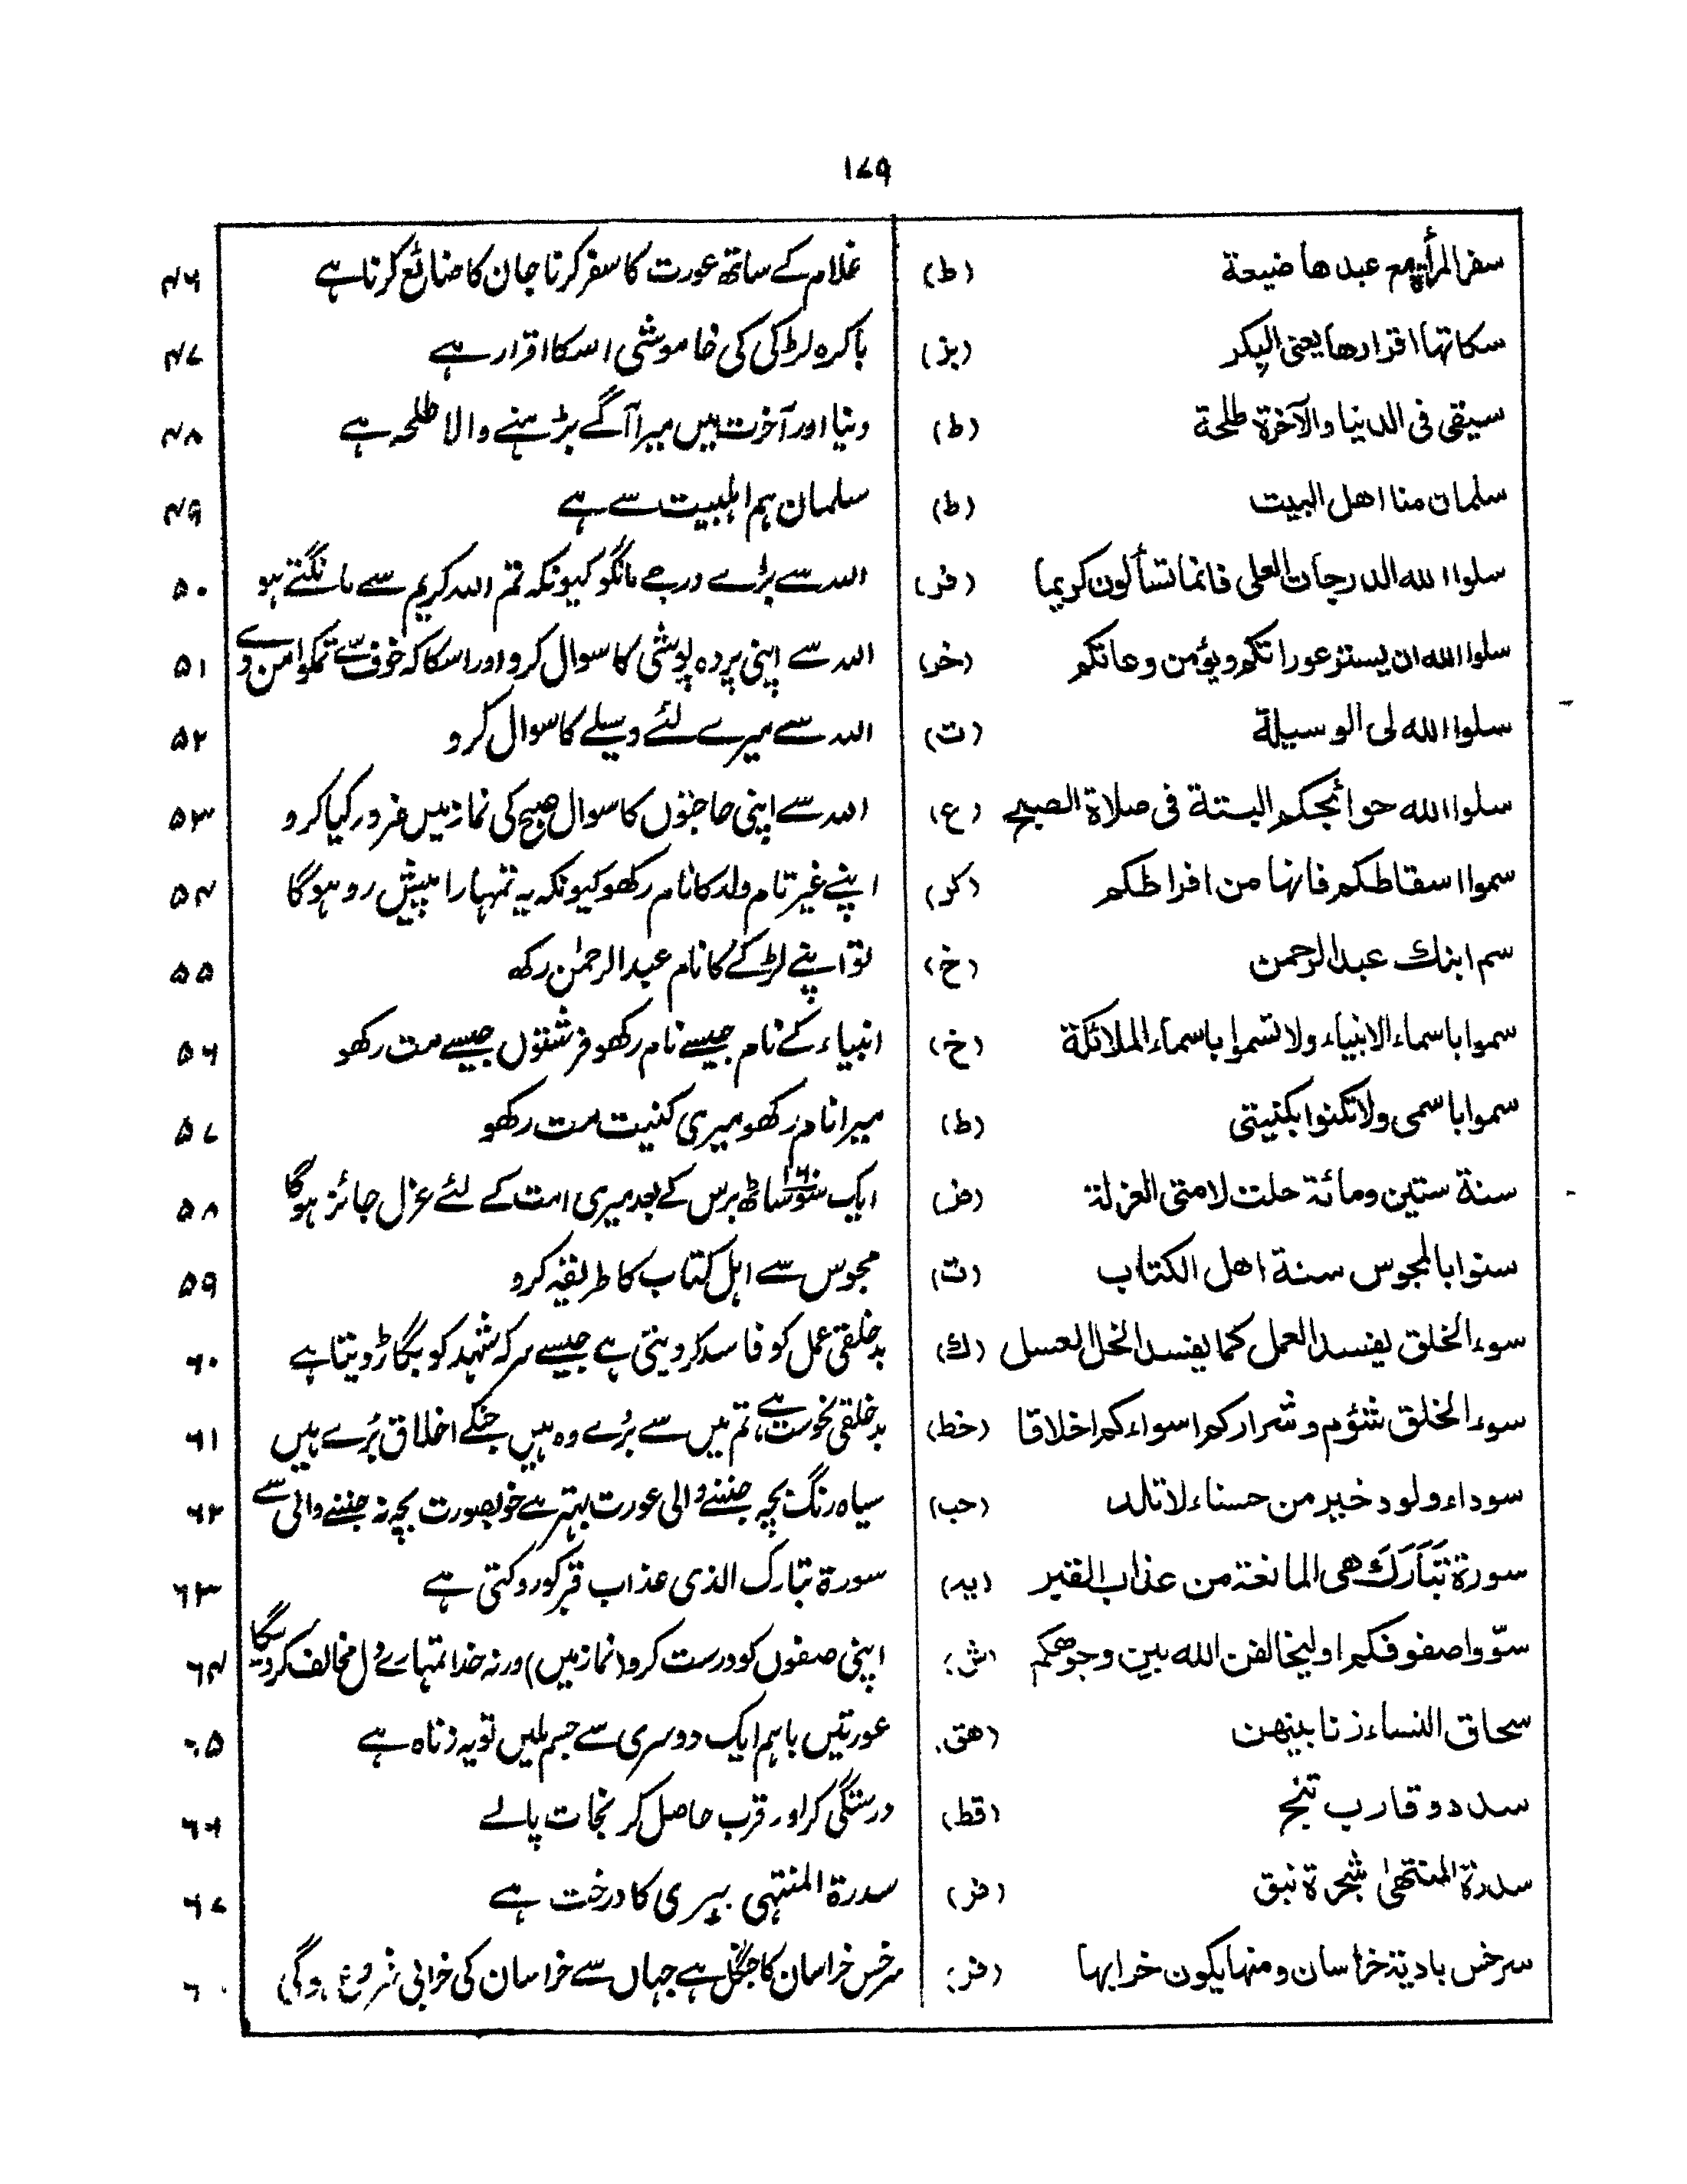 ۱۷۹
سفر المرأة مع عبدها ضیعة (ط) غلام کے ساتھ عورت کا سفر کرنا جان کا ضائع کرنا ہے ۴۶
سکاتها اقرارها یعنی البکر (بز) باکرہ لڑکی کی خاموشی اسکا اقرار ہے ۴۷
سبقی فی الدنیا والآخرة طلحة (ط) دنیا اور آخرت میں میرا آگے بڑہنے والا طلحہ ہے ۴۸
سلمان منا اهل البیت (ط) سلمان ہم اہلبیت سے ہے ۴۹
سلوا الله الدرجات العلی فانما تسألون کریما (فر) اللہ سے بڑے درجے مانگو کیونکہ تم اللہ کریم سے مانگتے ہو ۵۰
سلوا الله ان یستر عوراتکم ویؤمن روعاتکم (خر) اللہ سے اپنی پردہ پوشی کا سوال کرو اور اسکا کہ خوف سے تمکو امن دے ۵۱
سلوا الله لی الوسیلة (ت) اللہ سے میرے لئے وسیلے کا سوال کرو ۵۲
سلوا الله حوائجکم البتة فی صلاة الصبح (ع) اللہ سے اپنی حاجتوں کا سوال صبح کی نماز میں ضرور کیا کرو ۵۳
سموا اسقاطکم فانها من افراطکم (کر) اپنے غیر تام ولد کا نام رکھو کیونکہ یہ تمہارا پیش رو ہوگا ۵۴
سم ابنك عبد الرحمن (خ) تو اپنے لڑکے کا نام عبد الرحمٰن رکھ ۵۵
سموا باسماء الانبیاء ولا تسموا باسماء الملائکة (خ) انبیاء کے نام جیسے نام رکھو فرشتوں جیسے مت رکھو ۵۶
سموا باسمی ولا تکنوا بکنیتی (ط) میرا نام رکھو میری کنیت مت رکھو ۵۷
سنة ستین ومائة حلت لامتی العزلة (ض) ایک سو ۱۶۰ ساٹھ برس کے بعد میری امت کے لئے عزل جائز ہوگا ۵۸
سنوا بالمجوس سنة اهل الکتاب (ت) مجوس سے اہل کتاب کا طریقہ کرو ۵۹
سوء الخلق یفسد العمل کما یفسد الخل العسل (ك) بد خلقی عمل کو فاسد کر دیتی ہے جیسے سرکہ شہد کو بگاڑ دیتا ہے ۶۰
سوء الخلق شؤم وشرارکم اسواءکم اخلاقا (خط) بد خلقی نحوست ہے، تم میں سے بُرے وہ ہیں جنکے اخلاق بُرے ہیں ۶۱
سوداء ولود خیر من حسناء لا تلد (حب) سیاہ رنگ بچہ جننے والی عورت بہتر ہے خوبصورت بچہ نہ جننے والی سے ۶۲
سورة تَبَارَكَ هی المانعة من عذاب القبر (ید) سورۃ تبارک الذی عذاب قبر کو روکتی ہے ۶۳
سوّوا صفوفکم او لیخالفن الله بین وجوهکم (ش) اپنی صفوں کو درست کرو (نماز میں) ورنہ خدا تمہارے دل مخالف کر دیگا ۶۴
سحاق النساء زنا بینهن (هق) عورتیں باہم ایک دوسری سے جسم ملیں تو یہ زناہ ہے ۶۵
سدد وقارب تنج (قط) درستگی کر اور قرب حاصل کر نجات پالے ۶۶
سدرة المنتهیٰ شجرة نبق (فر) سدرۃ المنتہی بیری کا درخت ہے ۶۷
سرخس بادیة خراسان ومنها یکون خرابها (فر) سرخس خراسان کا جنگل ہے جہاں سے خراسان کی خرابی شروع ہوگی